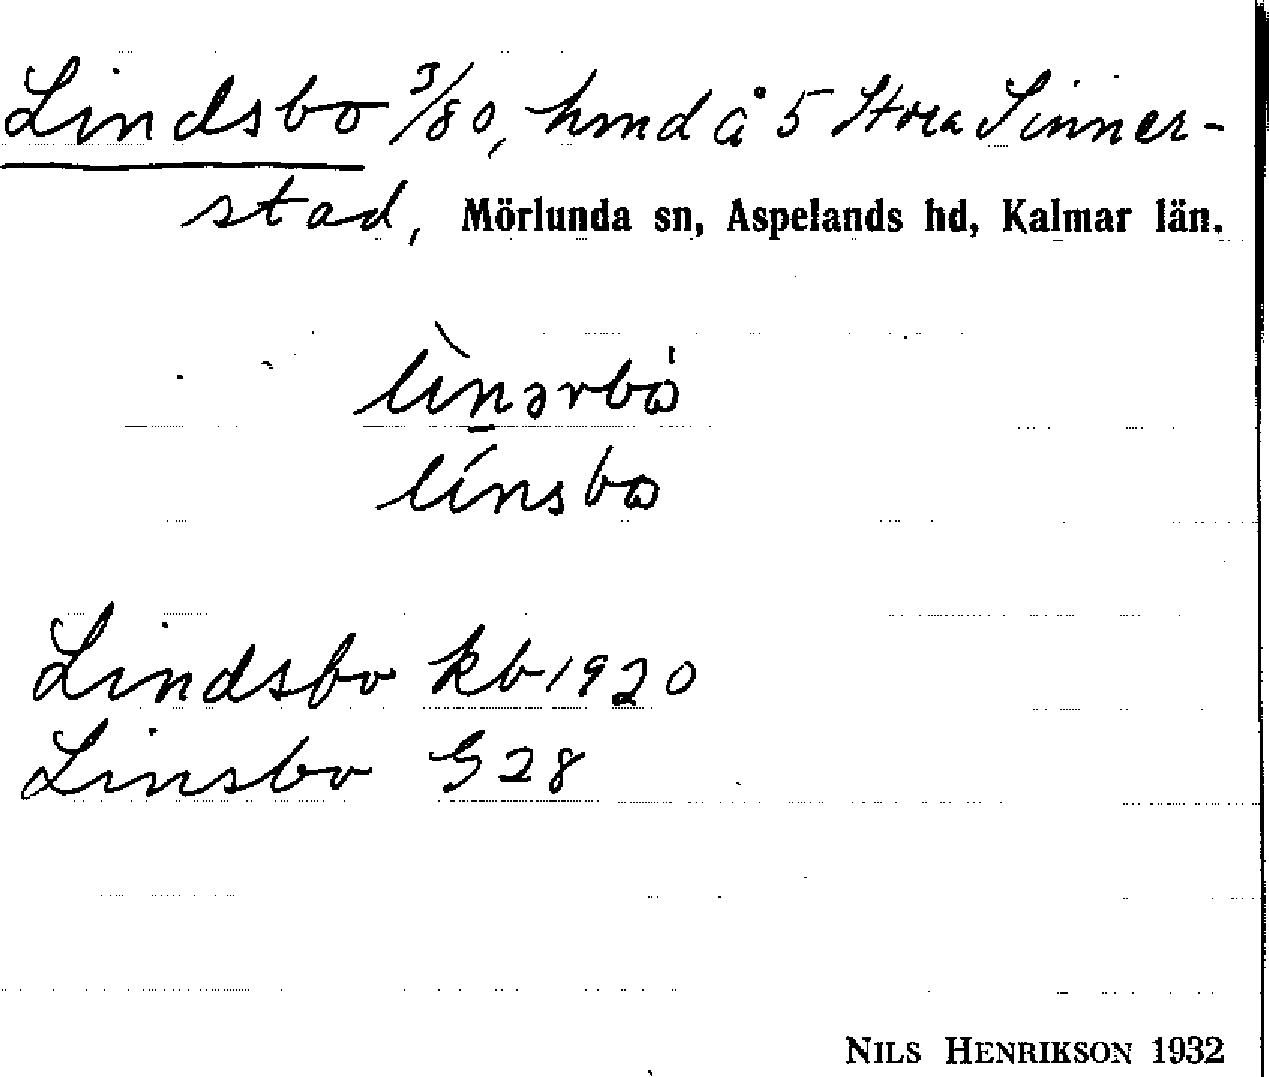 Lindsbo 3/80, hmd å 5 Stora Sinner-
stad, Mörlunda sn, Aspelands hd, Kalmar län.
lìnərbɷ̍
línsbɷ
Lindsbo kb 1920
Linsbo G 28
NILS HENRIKSON 1932